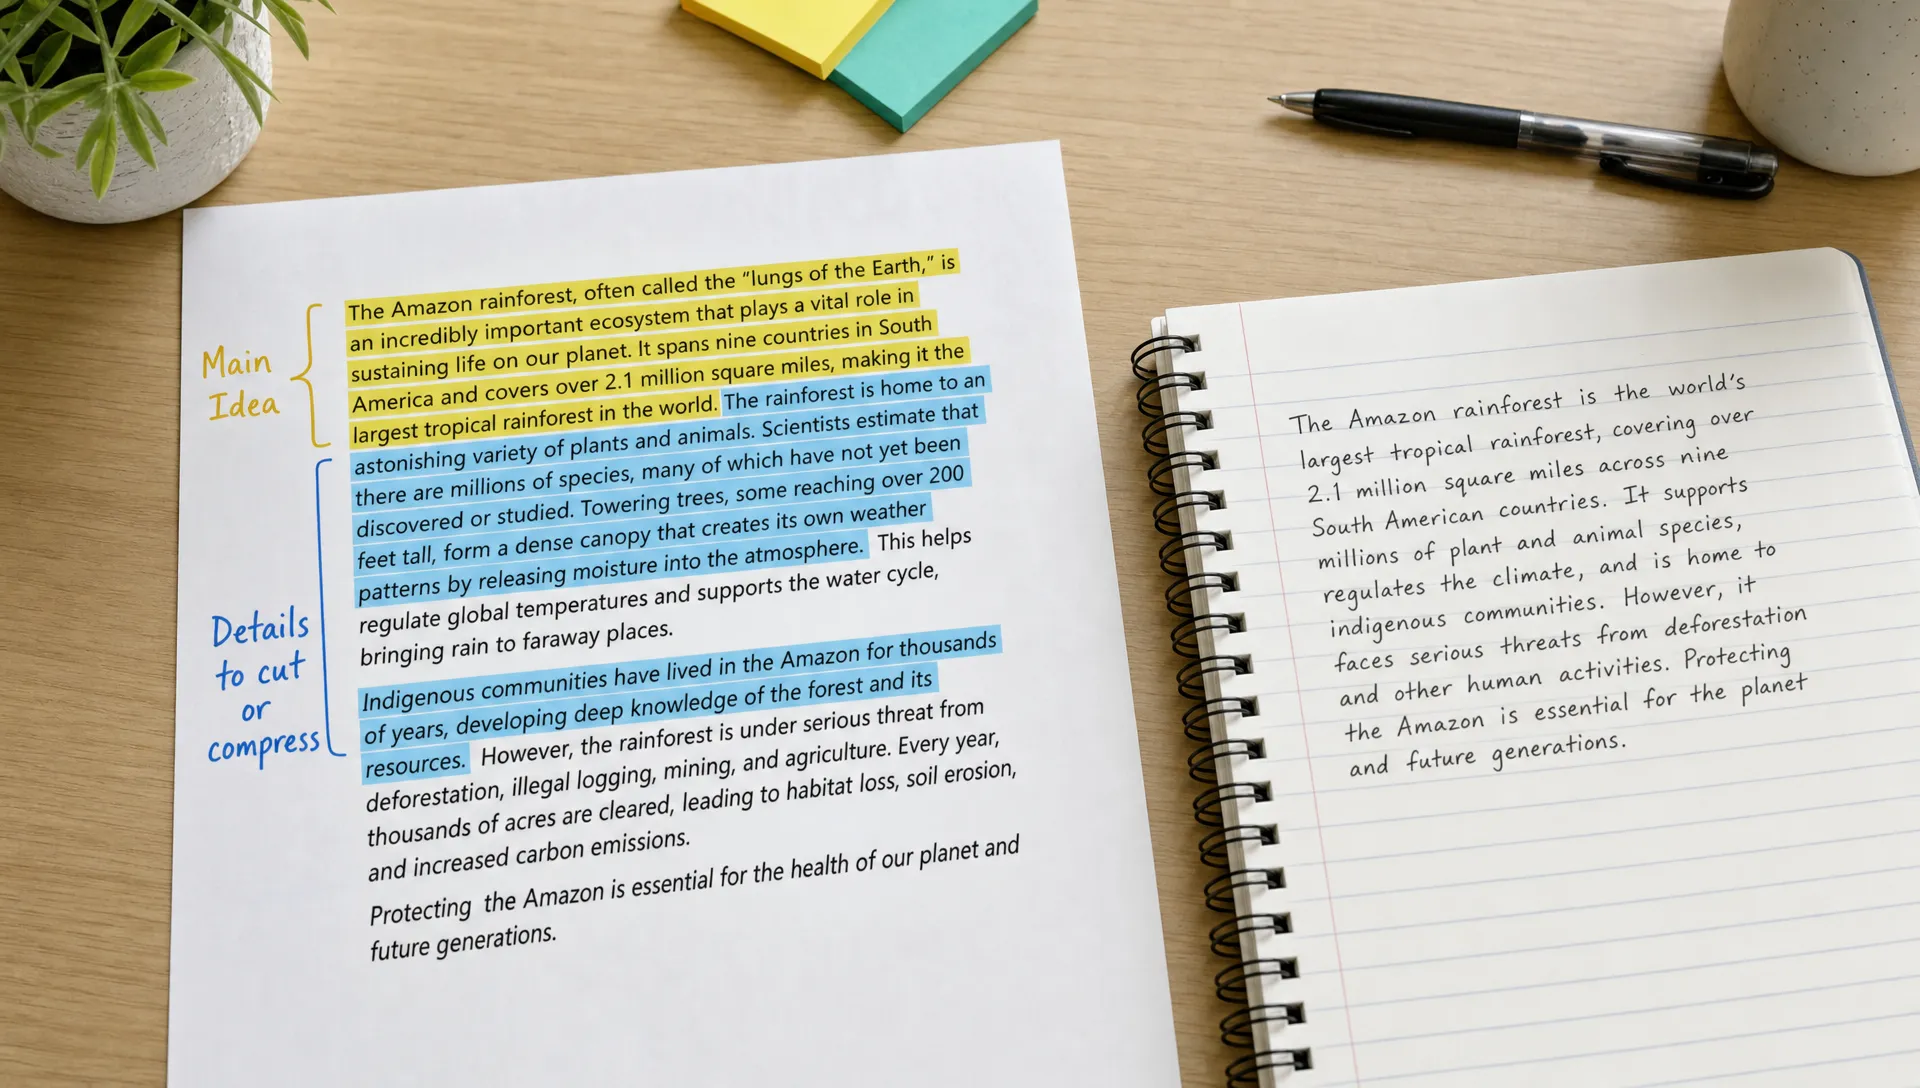 The Amazon rainforest, often called the “lungs of the Earth,” is
an incredibly important ecosystem that plays a vital role in
sustaining life on our planet. It spans nine countries in South
America and covers over 2.1 million square miles, making it the
largest tropical rainforest in the world. The rainforest is home to an
astonishing variety of plants and animals. Scientists estimate that
there are millions of species, many of which have not yet been
discovered or studied. Towering trees, some reaching over 200
feet tall, form a dense canopy that creates its own weather
patterns by releasing moisture into the atmosphere. This helps
regulate global temperatures and supports the water cycle,
bringing rain to faraway places.
Indigenous communities have lived in the Amazon for thousands
of years, developing deep knowledge of the forest and its
resources. However, the rainforest is under serious threat from
deforestation, illegal logging, mining, and agriculture. Every year,
thousands of acres are cleared, leading to habitat loss, soil erosion,
and increased carbon emissions.
Protecting the Amazon is essential for the health of our planet and
future generations.
Main
Idea
Details
to cut
or
compress
The Amazon rainforest is the world's
largest tropical rainforest, covering over
2.1 million square miles across nine
South American countries. It supports
millions of plant and animal species,
regulates the climate, and is home to
indigenous communities. However, it
faces serious threats from deforestation
and other human activities. Protecting
the Amazon is essential for the planet
and future generations.